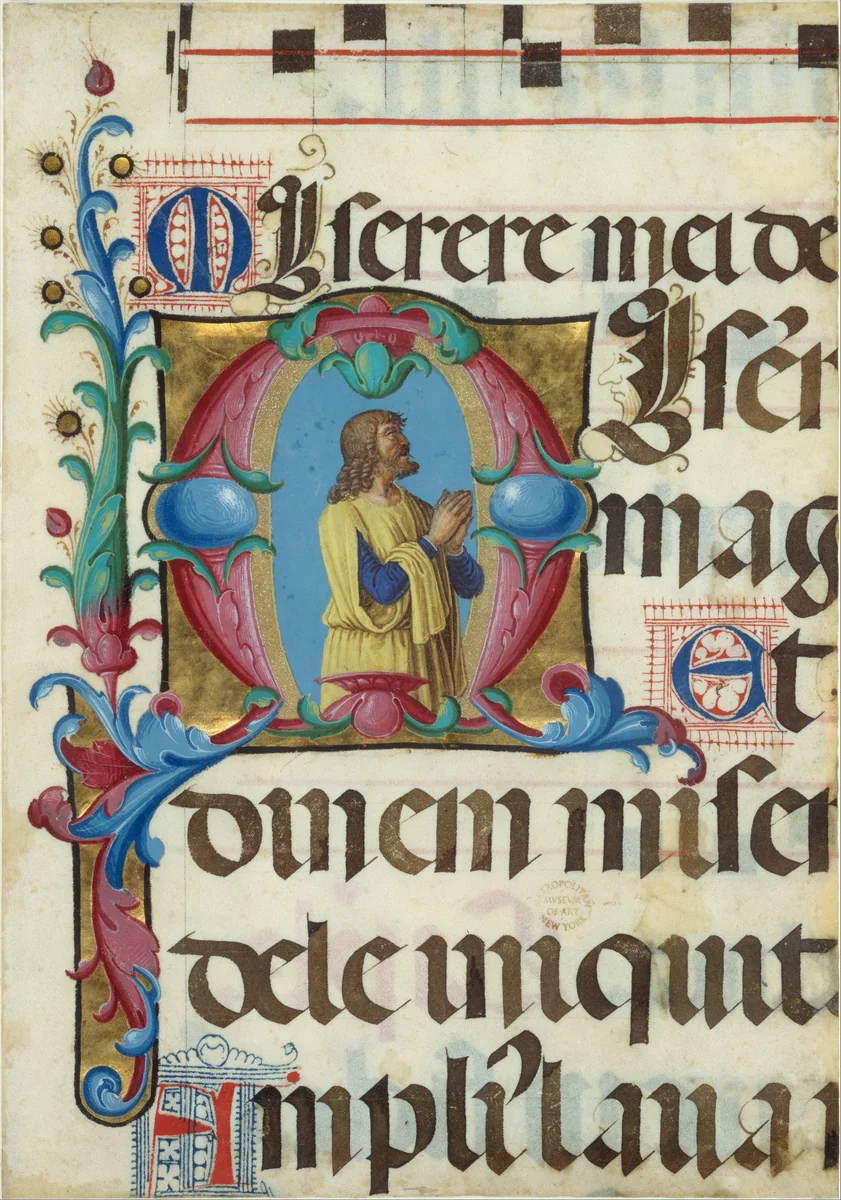 MIserere mei de
MIsér
mag
Et
dinem miser
dele iniquit
Ampli'laua
METROPOLITAN
MVSEVM
OF ART
NEW YORK